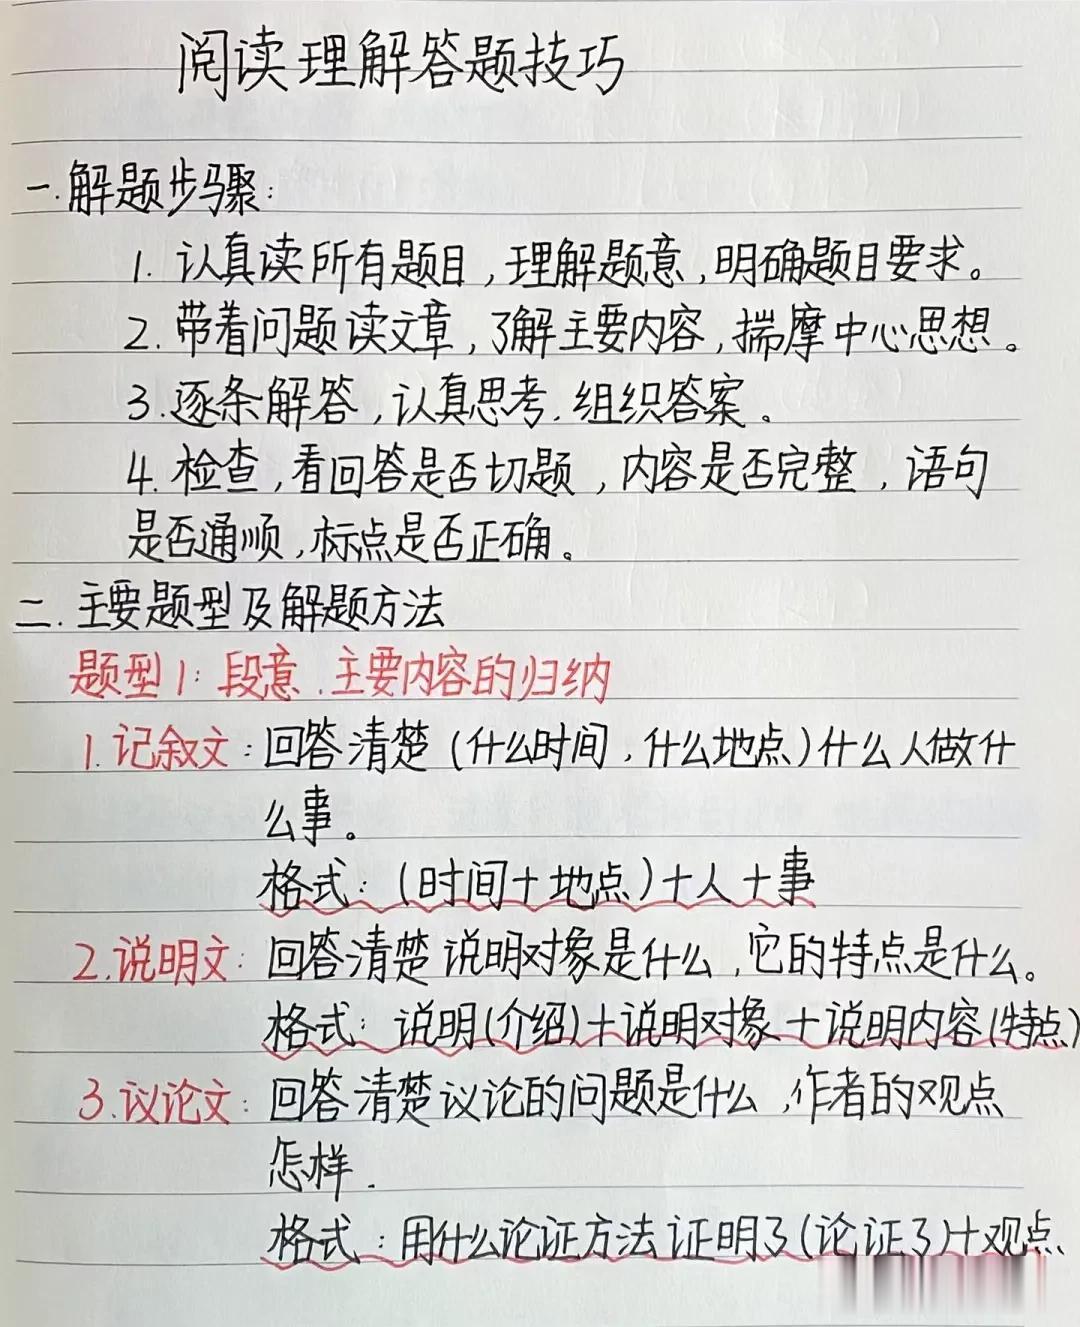 阅读理解答题技巧
一.解题步骤:
1. 认真读所有题目,理解题意,明确题目要求。
2. 带着问题读文章,了解主要内容,揣摩中心思想。
3.逐条解答,认真思考.组织答案。
4. 检查,看回答是否切题,内容是否完整,语句
是否通顺,标点是否正确。
二.主要题型及解题方法
题型1:段意.主要内容的归纳
1.记叙文:回答清楚(什么时间,什么地点)什么人做什
么事。
格式:(时间+地点)+人+事
2.说明文:回答清楚说明对象是什么,它的特点是什么。
格式:说明(介绍)+说明对象+说明内容(特点)
3.议论文:回答清楚议论的问题是什么,作者的观点
怎样.
格式:用什么论证方法证明了(论证了)+观点.